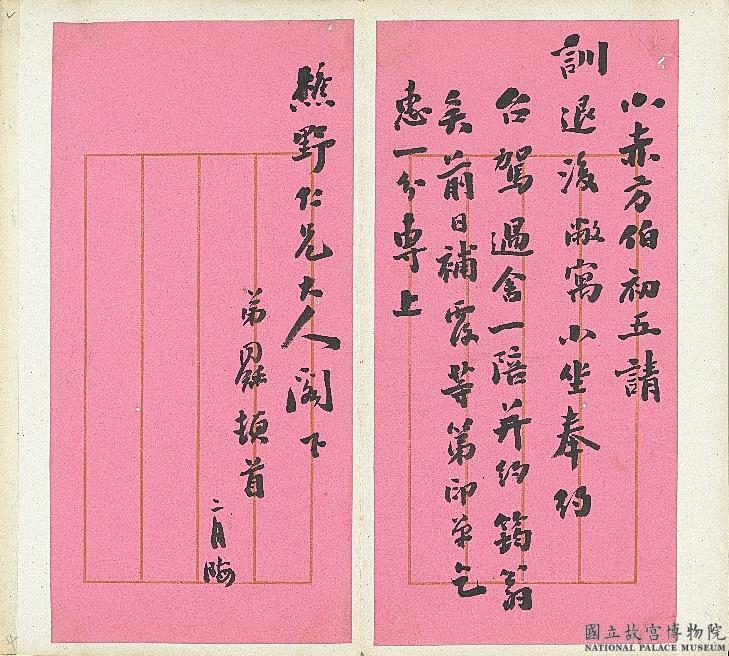 小赤方伯初五請
訓退後敝寓小坐奉約
台駕過舍一陪并約筠翁
矣前日補霞等第印單乞
惠一分專上
樵野仁兄大人閣下
弟 頓首
二月晦
國立故宮博物院
NATIONAL PALACE MUSEUM